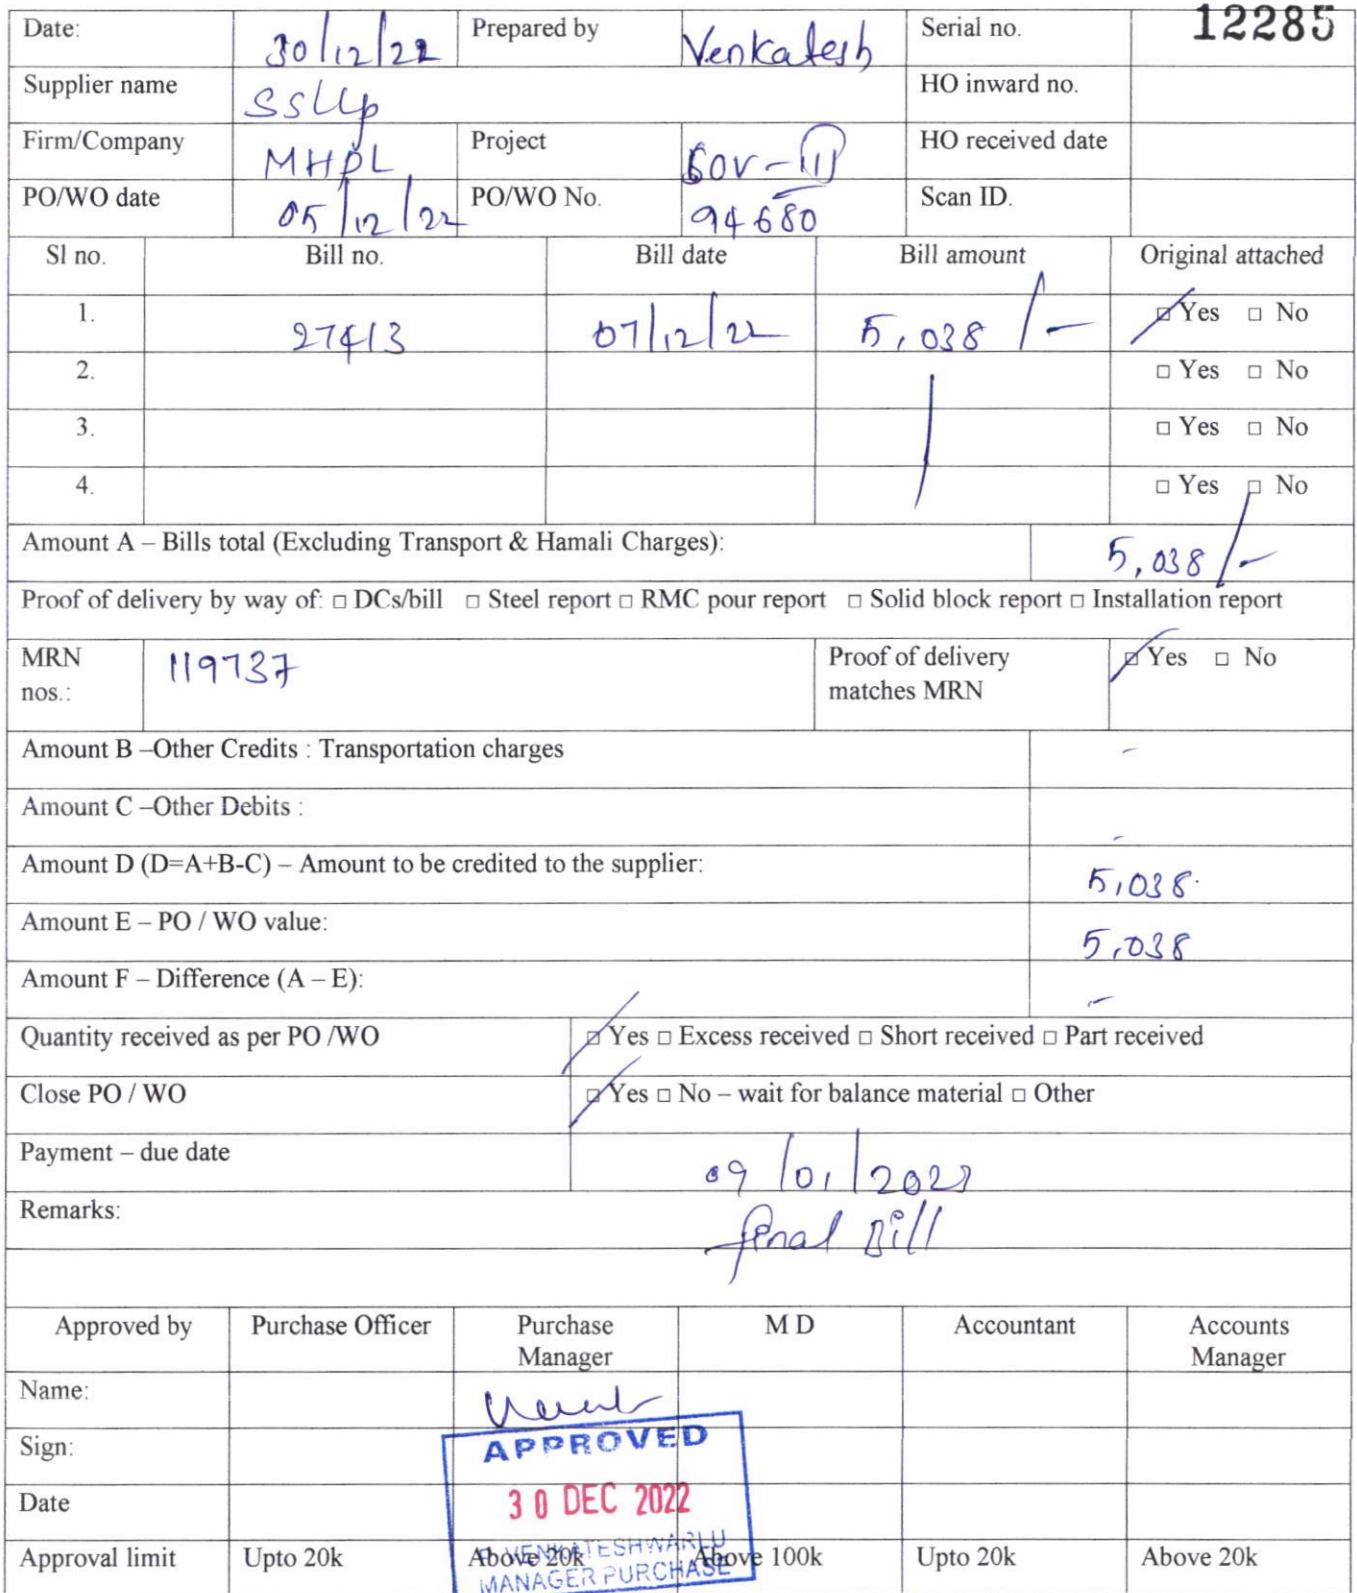 Date: 30/12/22 Prepared by Venkatesh Serial no. 12285
Supplier name SSLLp HO inward no.
Firm/Company MHPL Project GOV-III HO received date
PO/WO date 05/12/22 PO/WO No. 94680 Scan ID.
Sl no. Bill no. Bill date Bill amount Original attached
1. 27413 07/12/22 5,038/- ☑ Yes □ No
2. □ Yes □ No
3. □ Yes □ No
4. □ Yes □ No
Amount A – Bills total (Excluding Transport & Hamali Charges): 5,038/-
Proof of delivery by way of: □ DCs/bill □ Steel report □ RMC pour report □ Solid block report □ Installation report
MRN nos.: 119737 Proof of delivery matches MRN ☑ Yes □ No
Amount B –Other Credits : Transportation charges -
Amount C –Other Debits : -
Amount D (D=A+B-C) – Amount to be credited to the supplier: 5,038
Amount E – PO / WO value: 5,038
Amount F – Difference (A – E): -
Quantity received as per PO /WO ☑ Yes □ Excess received □ Short received □ Part received
Close PO / WO ☑ Yes □ No – wait for balance material □ Other
Payment – due date 09/01/2023
Remarks: final Bill
Approved by Purchase Officer Purchase Manager M D Accountant Accounts Manager
Name:
Sign: APPROVED
Date 30 DEC 2022
VENKATESHWARLU
Approval limit Upto 20k Above 20k Above 100k Upto 20k Above 20k
MANAGER PURCHASE